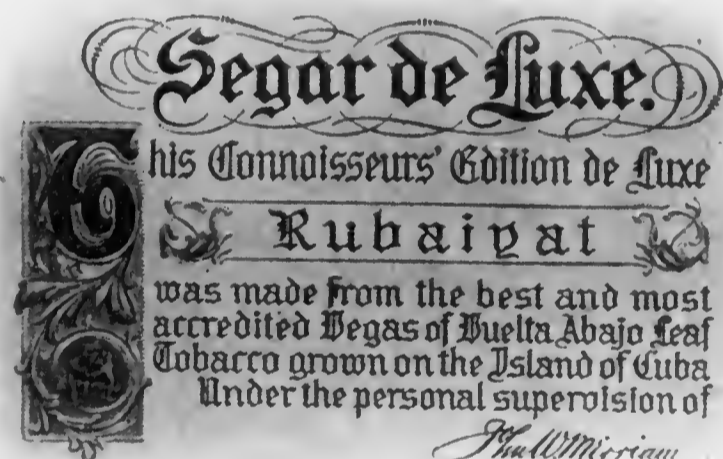 Segar de Luxe.
This Connoisseurs' Edition de Luxe
Rubaiyat
was made from the best and most
accredited Vegas of Vuelta Abajo Leaf
Tobacco grown on the Island of Cuba
Under the personal supervision of
Jhn W. Merriam